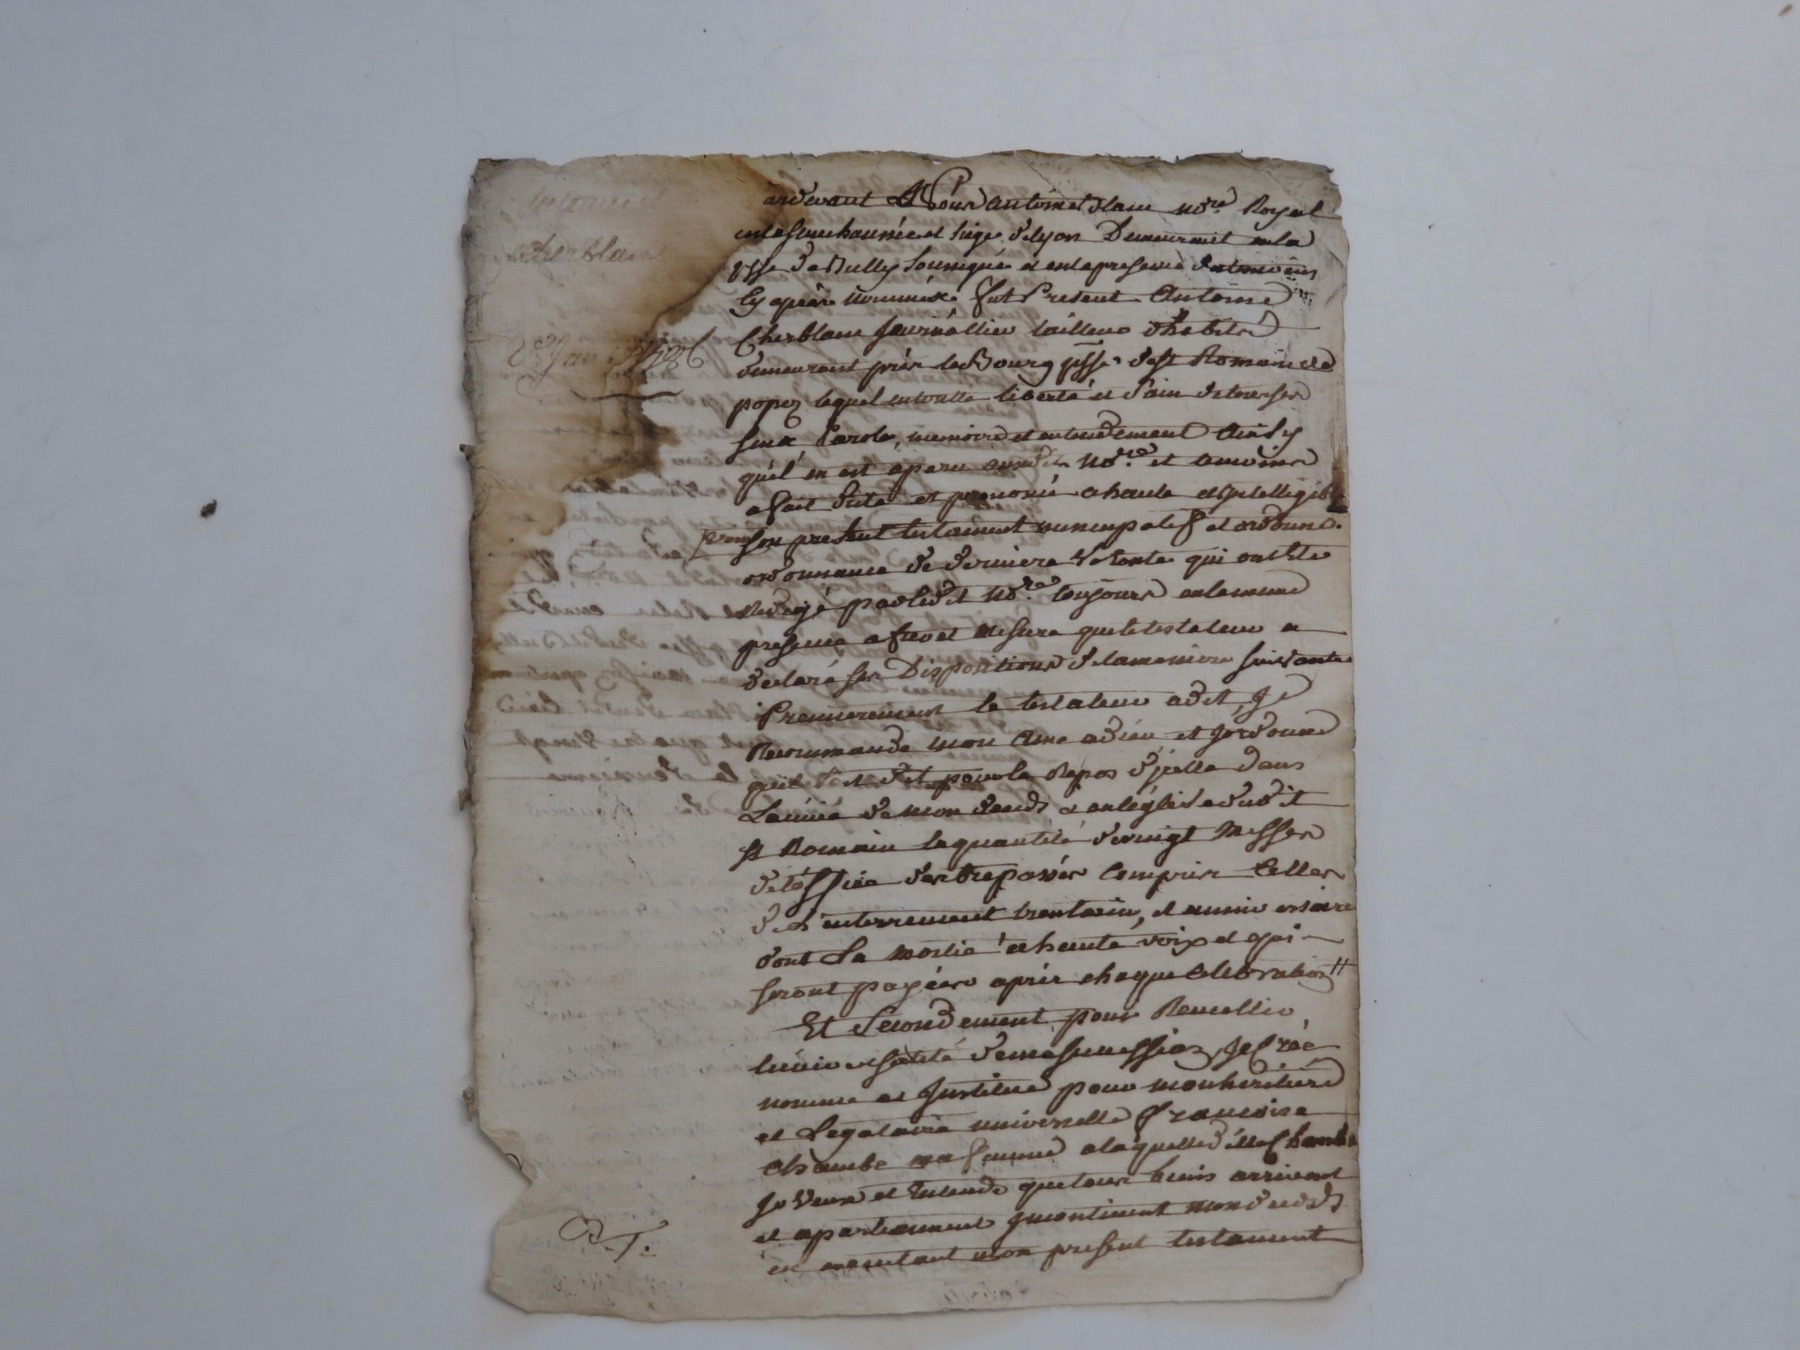 Cherblanc
ardevant Antoine Blanc no.re Royal
en la senechaussée et siege de lyon Demeurant en la
psse de Bully Soussigné et en la presence des temoins
Cy après nommés fut Present Antoine
Cherblanc Journallier tailleur d'habits
demeurant près le Bourg psse de St Romain de
popez lequel en toutte liberté et sain de tous ses
sens Parole, memoire et entendement Ainsy
qu'il en est aparu audit No.re et temoins
a fait dicté et prononcé a haute et Intelligible
son present testament nuncupatif et ordonne
ordonnance de derniere volonté qui ont été
Redigé par ledit No.re toujours en la meme
presence a fur et mesure que le testateur a
declaré ses Dispositions de la maniere suivante
Premierement le testateur a dit, Je
Recommande mon Ame a dieu et Jordonne
qu'il soit dit pour le Repos d'jcelle dans
L'année de mon deceds et en l'église dudit
St Romain la quantité de vingt Messes
de l'office des trepassés Comprise Celles
des enterrement trentain, et anniversaire
dont La moitié a haute voix et qui
seront payées après chaque Celebration
Et Secondement pour Recueillir
l'universalité de ma succession, Je Crée
nomme et Justitue pour mon heritiere
et Legataire universelle Francoise
Chambe ma femme a laquelle ditte Chambe
Je Veux et Entends que tous biens arrivent
et apartiennent Jncontinent mon deceds
en executant mon present testament